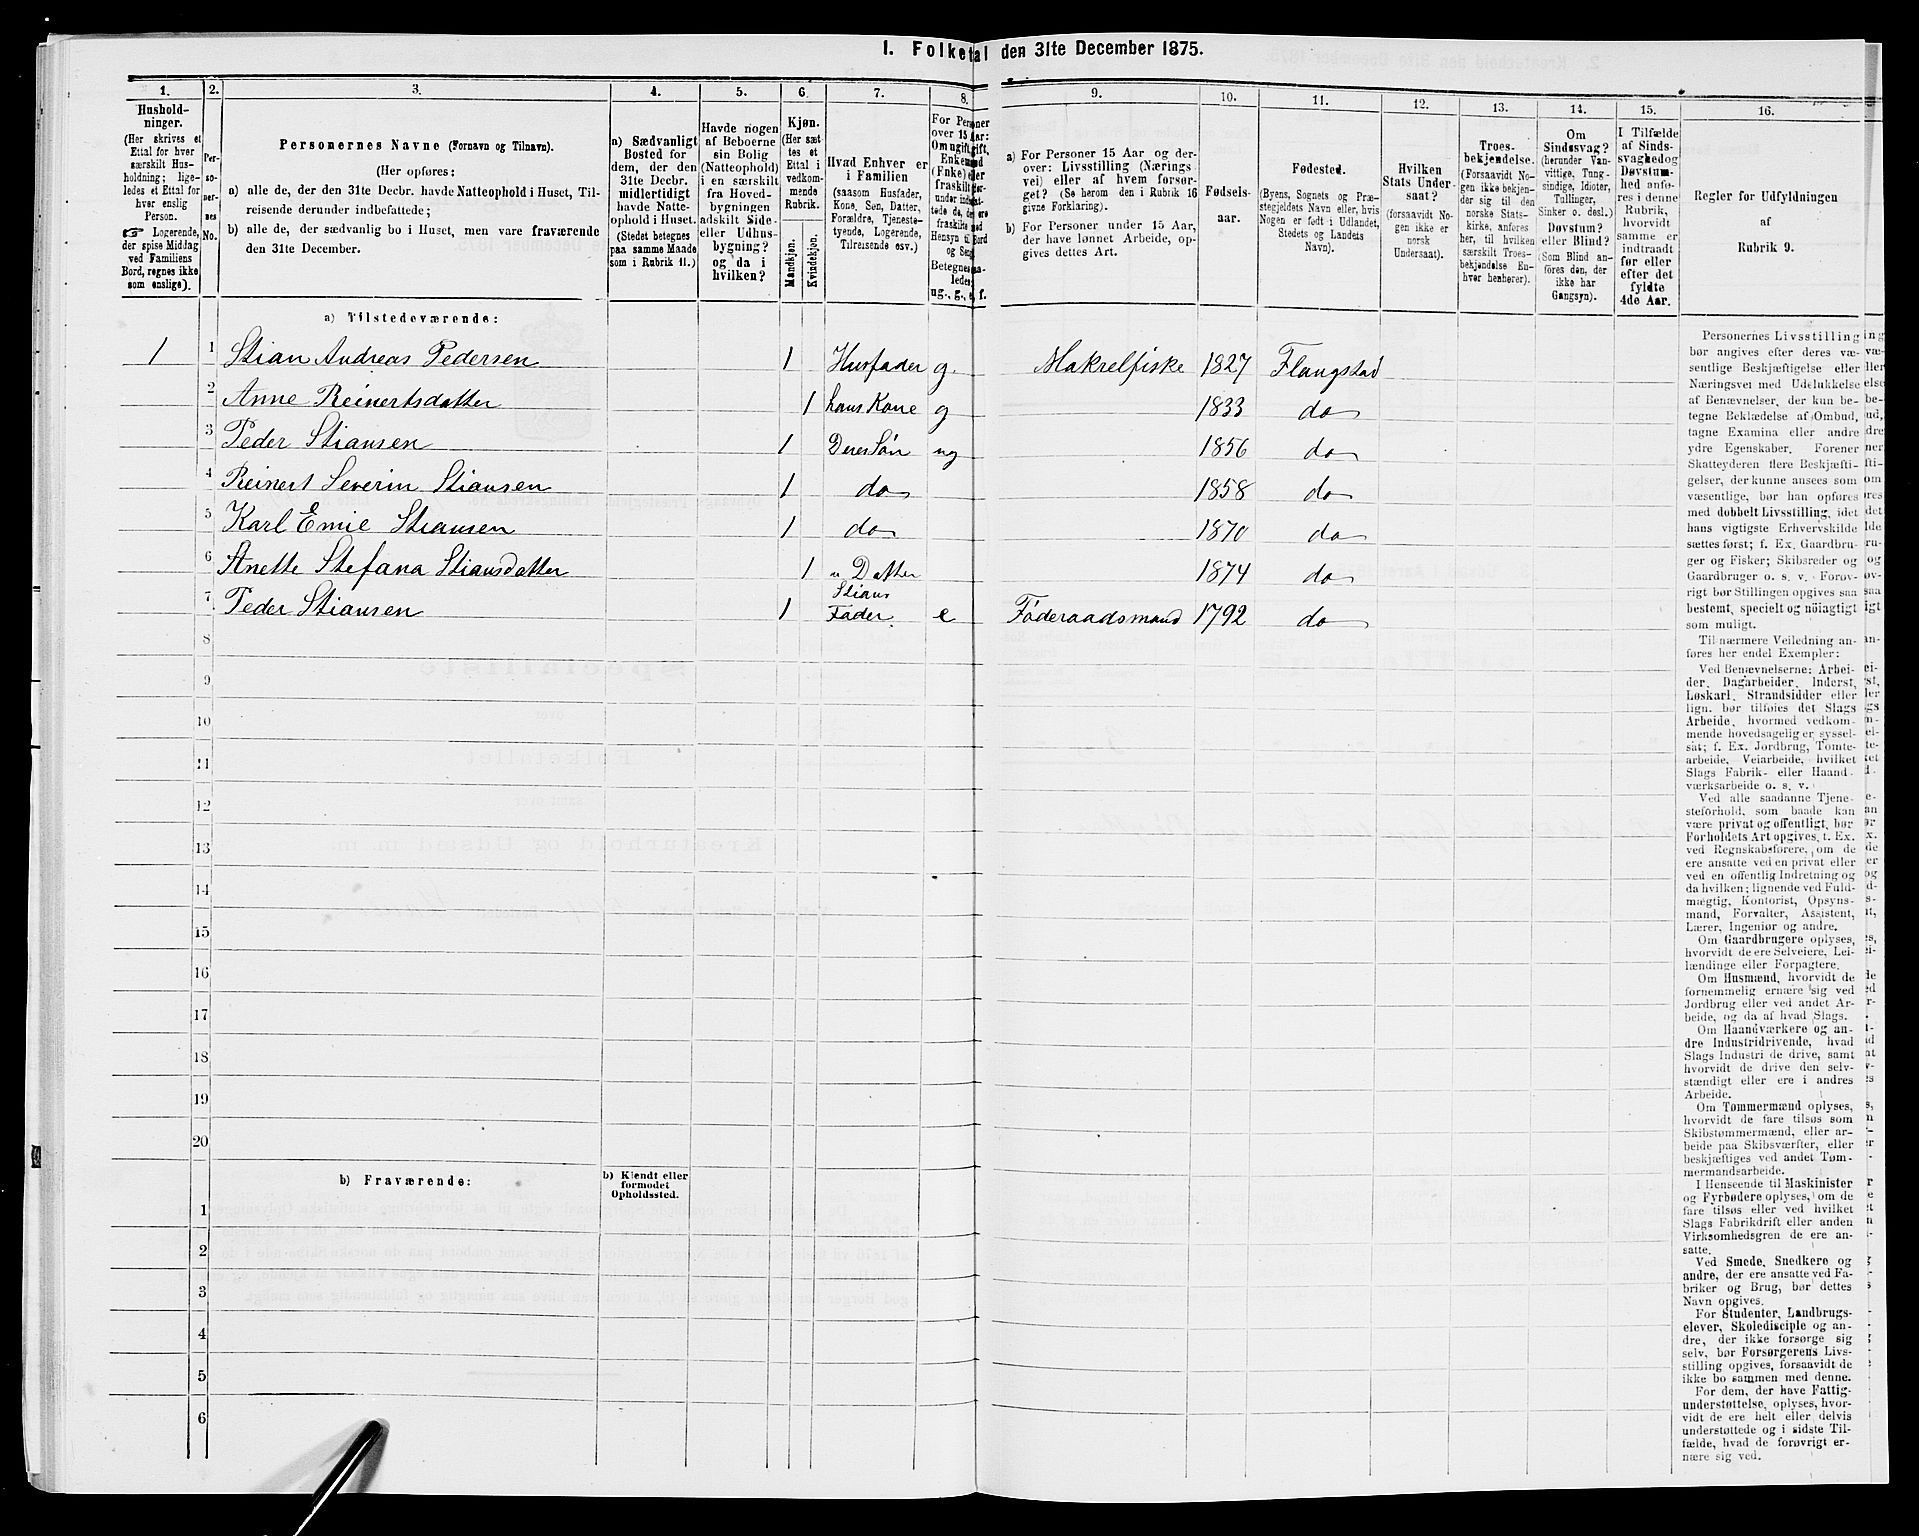 1. Folketal den 31te December 1875.
1. 2. 3. 4. 5. 6. 7. 8. 9. 10. 11. 12. 13. 14. 15. 16.
Hushold-
ninger.
(Her skrives et
Ettal for hver
særskilt Hus-
holdning; lige-
ledes et Ettal for
hver enslig
Person.
☞ Logerende,
der spise Middag
ved Familiens
Bord, regnes ikke
som enslige).
Per-
so-
ner-
nes
No.
Personernes Navne (Fornavn og Tilnavn).
(Her opføres:
a) alle de, der den 31te Decbr. havde Natteophold i Huset, Til-
reisende derunder indbefattede;
b) alle de, der sædvanlig bo i Huset, men vare fraværende
den 31te December.
a) Sædvanligt
Bosted for
dem, der den
31te Decbr.
midlertidigt
havde Natte-
ophold i Huset.
(Stedet betegnes
paa samme Maade
som i Rubrik 11.)
Havde nogen
af Beboerne
sin Bolig
(Natteophold)
i en særskilt
fra Hoved-
bygningen
adskilt Side-
eller Udhus-
bygning?
og da i
hvilken?
Kjøn.
(Her sæt-
tes et
Ettal i
vedkom-
mende
Rubrik.
Mandkjøn.
Kvindekjøn.
Hvad Enhver er
i Familien
(saasom Husfader,
Kone, Søn, Datter,
Forældre, Tjeneste-
tyende, Logerende,
Tilreisende osv.).
For Personer
over 15 Aar:
Om ugift, gift,
a) For Personer 15 Aar og der-
over: Livsstilling (Nærings
vei) eller af hvem forsør-
get? (Se herom den i Rubrik 16
givne Forklaring).
b) For Personer under 15 Aar,
der have lønnet Arbeide, op-
gives dettes Art.
Fødsels-
aar.
Fødested.
(Byens, Sognets og Præ-
stegjeldets Navn eller, hvis
Nogen er født i Udlandet,
Stedets og Landets
Navn).
Hvilken
Stats Under-
saat?
(forsaavidt No-
gen ikke er
norsk
Undersaat).
Troes-
bekjendelse.
(Forsaavidt No-
gen ikke bekjen-
der sig til den
norske Stats-
kirke, anføres
her, til hvilken
særskilt Troes-
bekjendelse En-
hver henhører).
Om
Sindssvag?
(herunder Van-
vittige, Tung-
sindige, Idioter,
Tullinger,
Sinker o. desl.)
Døvstum?
eller Blind?
(Som Blind an-
føres den, der
ikke har
Gangsyn).
I Tilfælde
af Sinds-
svaghed og
Døvstum-
hed anfø-
res i denne
Rubrik,
hvorvidt
samme er
indtraadt
før eller
efter det
fyldte
4de Aar.
Regler for Udfyldningen
af
Rubrik 9.
a) Tilstedeværende:
1 1 Stian Andreas Pedersen 1 Husfader g. Makrelfiske 1827 Flangstad
2 Anne Reinertsdatter 1 hans Kone g 1833 do
3 Peder Stiansen 1 Deres Søn ug 1856 do
4 Reinert Severin Stiansen 1 do 1858 do
5 Karl Emil Stiansen 1 do 1870 do
6 Anette Stefana Stiansdatter 1 " Datter 1874 do
7 Peder Stiansen 1 Stians Fader. e Føderaadsmand 1792 do
8
9
10
11
12
13
14
15
16
17
18
19
20
b) Fraværende:
b) Kjendt eller
formodet
Opholdssted.
1
2
3
4
5
6
Personernes Livsstilling
bør angives efter deres væ-
sentlige Beskjæftigelse eller
Næringsvei med Udelukkelse
af Benævnelser, der kun be-
tegne Beklædelse af Ombud,
tagne Examina eller andre
ydre Egenskaber. Forener
Skatteyderen flere Beskjæfti-
gelser, der kunne ansees som
væsentlige, bør han opføres
med dobbelt Livsstilling, idet
hans vigtigste Erhvervskilde
sættes først; f. Ex. Gaardbru-
ger og Fisker; Skibsreder og
Gaardbruger o. s. v. Forøv-
rigt bør Stillingen opgives saa
bestemt, specielt og nöiagtigt
som muligt.
Til nærmere Veiledning an-
føres her endel Exempler:
Ved Benævnelserne: Arbei-
der, Dagarbeider, Inderst,
Løskarl, Strandsidder eller
lign. bør tilføies det Slags
Arbeide, hvormed vedkom-
mende hovedsagelig er syssel-
sat; f. Ex. Jordbrug, Tomte-
arbeide, Veiarbeide, hvilket
Slags Fabrik- eller Haand-
værksarbeide o. s. v.
Ved alle saadanne Tjene-
steforhold, som baade kan
være privat og offentligt, bør
Forholdets Art opgives, t. Ex.
ved Regnskabsførere, om de
ere ansatte ved en privat eller
ved en offentlig Indretning og
da hvilken; lignende ved Fuld-
mægtig, Kontorist, Opsyns-
mand, Forvalter, Assistent,
Lærer, Ingeniør og andre.
Om Gaardbrugere oplyses,
hvorvidt de ere Selveiere, Lei-
lændinge eller Forpagtere.
Om Husmænd, hvorvidt de
fornemmelig ernære sig ved
Jordbrug eller ved andet Ar-
beide, og da af hvad Slags.
Om Haandværkere og an-
dre Industridrivende, hvad
Slags Industri de drive, samt
hvorvidt de drive den selv-
stændigt eller ere i andres
Arbeide.
Om Tømmermænd oplyses,
hvorvidt de fare tilsøs som
Skibstømmermænd, eller ar-
beide paa Skibsværfter, eller
beskjæftiges ved andet Tøm-
mermandsarbeide.
I Henseende til Maskinister
og Fyrbødere oplyses, om de
fare tilsøs eller ved hvilket
Slags Fabrikdrift eller anden
Virksomhedsgren de ere an-
satte.
Ved Smede, Snedkere og
andre, der ere ansatte ved Fa-
briker og Brug, bør dettes
Navn opgives.
For Studenter, Landbrugs-
elever, Skoledisciple og an-
dre, der ikke forsørge sig
selv, bør Forsørgerens Livs-
stilling opgives, forsaavidt de
ikke bo sammen med denne.
For dem, der have Fattig-
understøttelse, oplyses, hvor-
vidt de ere helt eller delvis
understøttede og i sidste Til-
fælde, hvad de forøvrigt er-
nære sig ved.